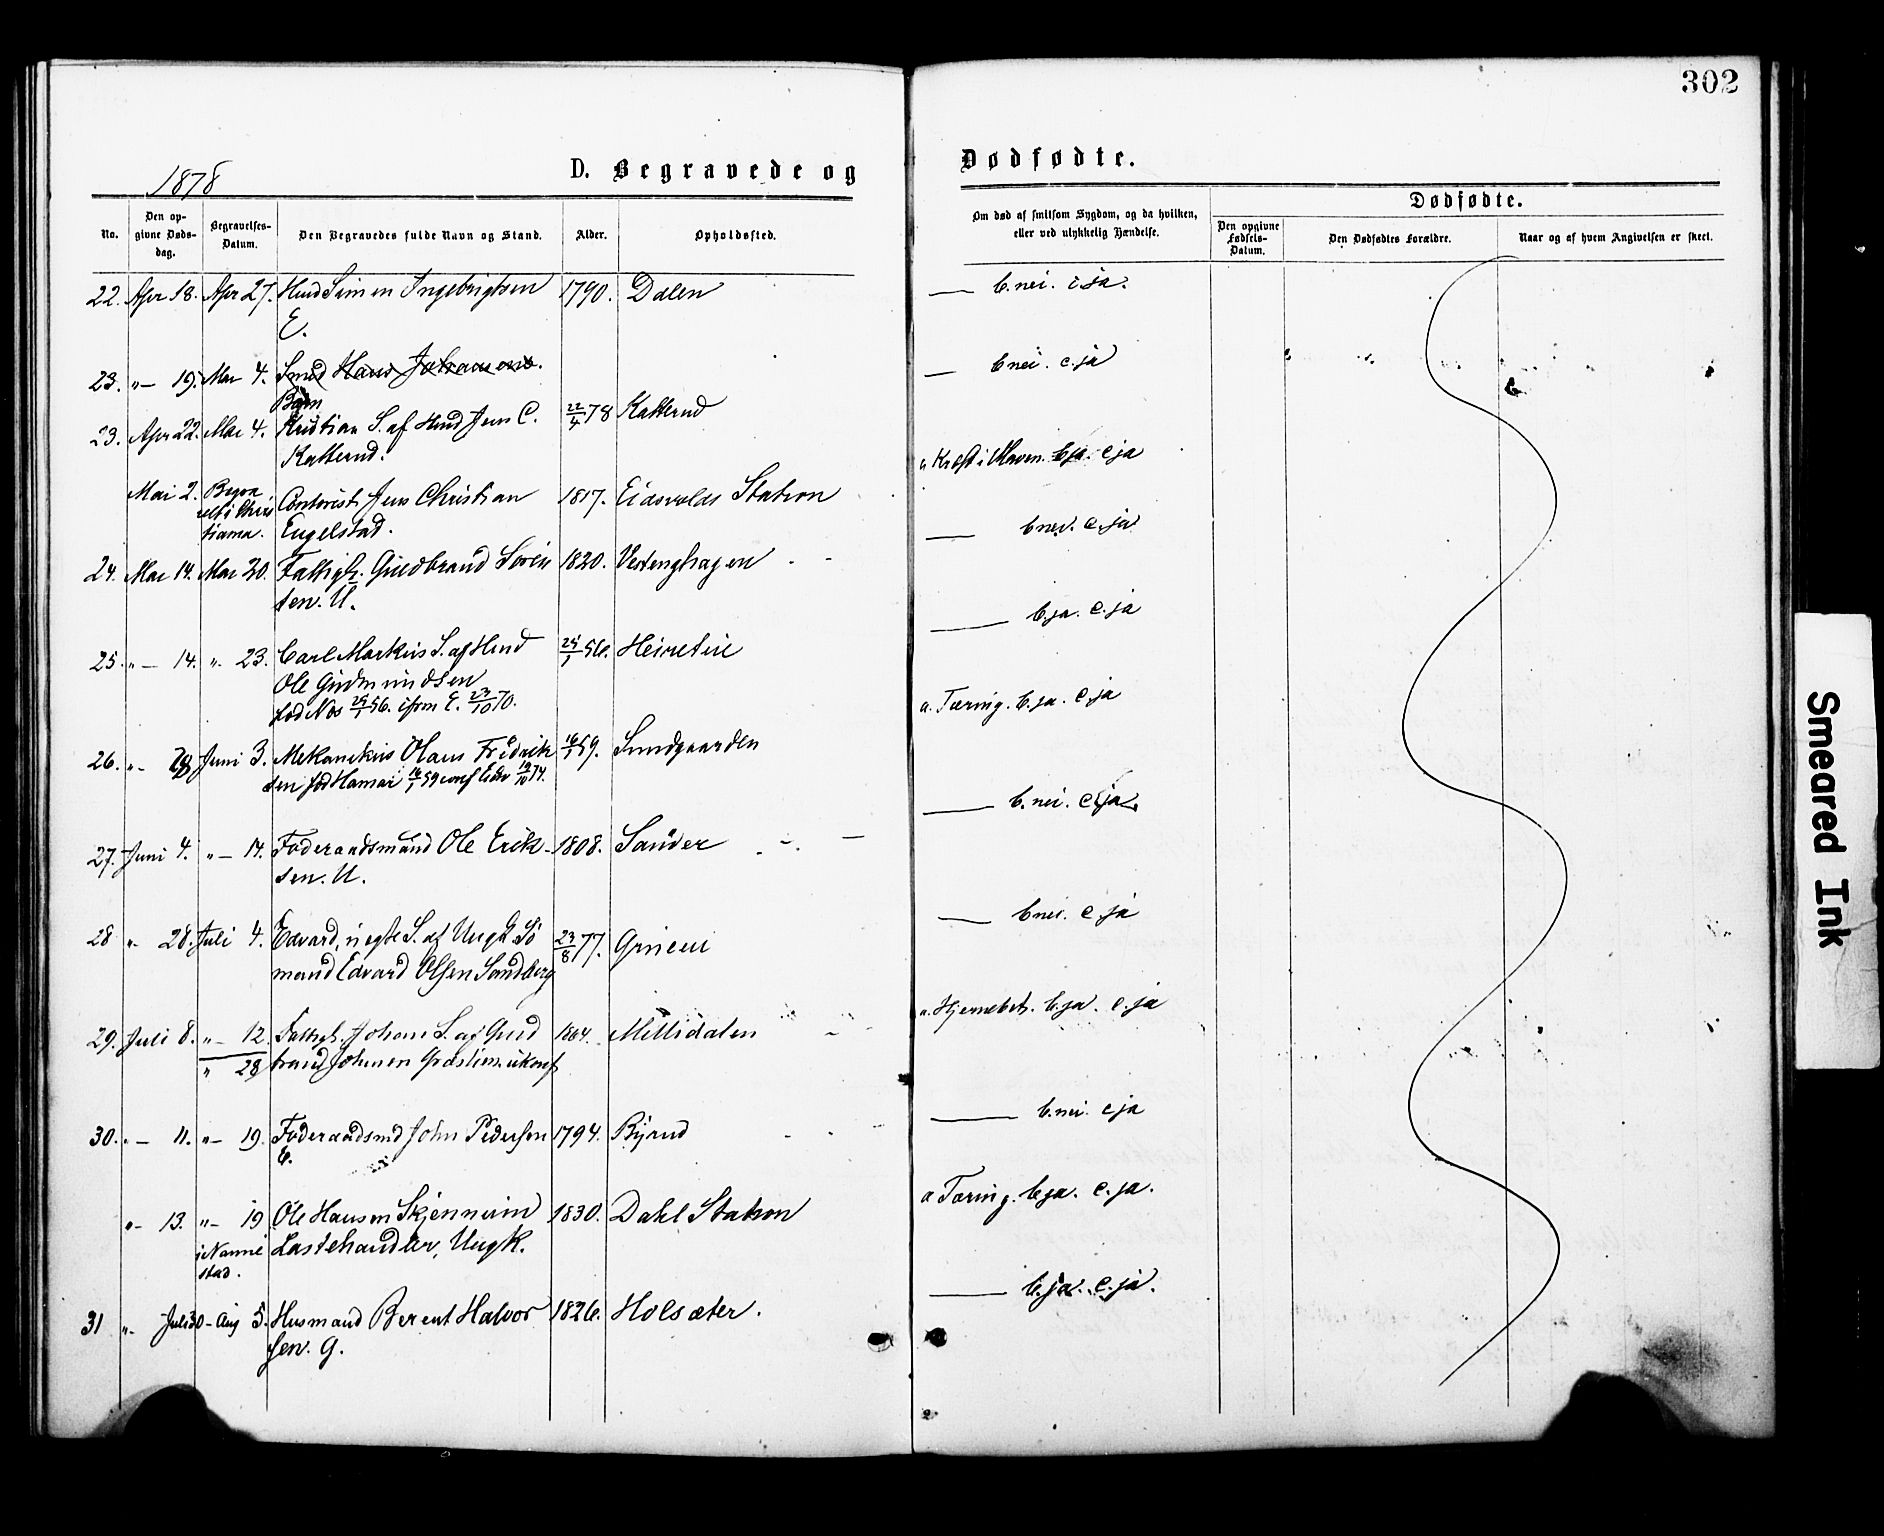 302
1878
D. Begravede og Dødfødte.
No.
Den opgivne Dødsdag.
Begravelses-Datum.
Den Begravedes fulde Navn og Stand.
Alder.
Opholdssted.
Om død af smitsom Sygdom, og da hvilken, eller ved ulykkelig Hændelse.
Dødfødte.
Den opgivne Fødsels-Datum.
Den Dødfødtes Forældre.
Naar og af hvem Angivelsen er skeet.
22. Apr 18. Apr 27. Husd Simen Ingebrigtsen 1790. Dalen — b. nei. c ja.
E.
23. " — 19. Mai 4. Smed Hans Johannens. — b nei. c. ja
Barn
23. Apr 22. Mai 4. Kristian S. af Husd Jens C. 22/4 78 Katterud
Katterud. a Kræft i Maven. b ja. c ja
Mai 2. Contorist Jens Christian 1817. Eidsvolds Station
tiania. Engelstad. — b nei. c. ja
24. Mai 14. Mai 20. Fattigl. Gudbrand Soren 1820. Vestenghagen
sen. U. — b. ja. c. ja
25. " — 14. " 23. Carl Markus S. af Husd 25/1 56. Heiretin
Ole Gudmundsen
fød Nes 25/1 56. E. 23/10 70. a. Tæring. b. ja. c. ja
26. " - 28 Juni 3. Mekanikus Olaus Fredrik 16/1 59. Sundgaarden
sen fød Hamar 16/1 59 conf Eidsv 74.
— b. nei. c ja.
27. Juni 4. " — 14. Føderaadsmand Ole Erik- 1808. Sander
sen. U.
— b nei. c ja
28 " - 28. Juli 4. Edvard, uegte S. af Ungk. Sø 23/8 77.
mand Edvard Olsen Sandberg
a. Hjernebet. b. ja. c. ja
29. Juli 8. " — 12. Fattigl. Johan S. af Gud 1864. Millidalen
" 28 brand Johnsen
— b. nei. c ja
30. " — 11. " — 19. Føderaadsmd John Pedersen 1794. Byrud
E.
a Tæring. b ja. c. ja.
" - 13. " — 19 Ole Hansen Skjennum 1830. Dahl Station
i Nanne Lastehandler, Ungk.
stad.
— b. ja. c. ja.
31 " - Juli 30 - Aug 5. Husmand Berent Halvor 1826. Holsæter.
sen. G.
Smeared Ink